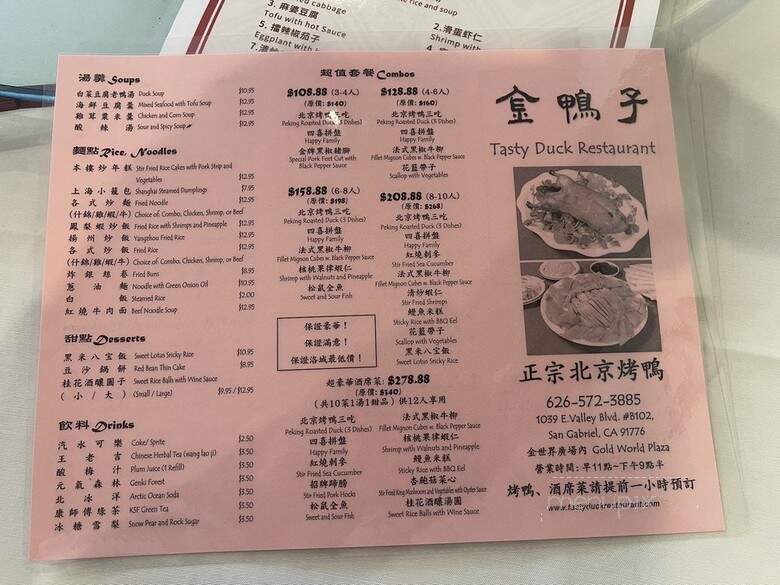 3. 麻婆豆腐
Tofu with hot Sauce
5. 擂辣椒茄子
Eggplant with
rice and soup
2.滑蛋蝦仁
Shrimp with
湯羹 Soups
白菜豆腐老鴨湯 Duck Soup $10.95
海鮮豆腐羹 Mixed Seafood with Tofu Soup $12.95
雞茸粟米羹 Chicken and Corn Soup $12.95
酸辣湯 Sour and Spicy Soup $12.95
麵點 Rice, Noodles
本樓炒年糕 Stir Fried Rice Cakes with Pork Strip and
Vegetables $12.95
上海小籠包 Shanghai Steamed Dumplings $7.95
各式炒麵 Fried Noodle $12.95
(什錦/雞/蝦/牛) Choice of: Combo, Chicken, Shrimp, or Beef
鳳梨蝦炒飯 Fried Rice with Shrimps and Pineapple $12.95
揚州炒飯 Yangzhou Fried Rice $12.95
各式炒飯 Fried Rice $12.95
(什錦/雞/蝦/牛) Choice of: Combo, Chicken, Shrimp, or Beef
炸銀絲卷 Fried Buns $8.95
蔥油麵 Noodle with Green Onion Oil $10.95
白飯 Steamed Rice $2.00
紅燒牛肉麵 Beef Noodle Soup $12.95
甜點 Desserts
黑米八宝飯 Sweet Lotus Sricky Rice $10.95
豆沙鍋餅 Red Bean Thin Cake $8.95
桂花酒釀圓子 Sweet Rice Balls with Wine Sauce
(小/大) (Small/Large) $9.95 / $12.95
飲料 Drinks
汽水可樂 Coke/ Sprite $2.50
王老吉 Chinese Herbal Tea (wang lao ji) $3.50
酸梅汁 Plum Juice (1 Refill) $3.50
元氣森林 Genki Forest $3.50
北冰洋 Arctic Ocean Soda $3.50
康師傅綠茶 KSF Green Tea $3.50
冰糖雪梨 Snow Pear and Rock Sugar $3.50
超值套餐 Combos
$108.88 (3-4人)
(原價: $140)
北京烤鴨三吃
Peking Roasted Duck (3 Dishes)
四喜拼盤
Happy Family
金牌黑椒豬腳
Special Pork Feet Cut with
Black Pepper Sauce
$128.88 (4-6人)
(原價: $160)
北京烤鴨三吃
Peking Roasted Duck (3 Dishes)
四喜拼盤
Happy Family
法式黑椒牛柳
Fillet Mignon Cubes w. Black Pepper Sauce
花藍帶子
Scallop with Vegetables
$158.88 (6-8人)
(原價: $198)
北京烤鴨三吃
Peking Roasted Duck (3 Dishes)
四喜拼盤
Happy Family
法式黑椒牛柳
Fillet Mignon Cubes w. Black Pepper Sauce
核桃果律蝦仁
Shrimp with Walnuts and Pineapple
松鼠全魚
Sweet and Sour Fish
$208.88 (8-10人)
(原價: $268)
北京烤鴨三吃
Peking Roasted Duck (3 Dishes)
四喜拼盤
Happy Family
紅燒刺參
Stir Fried Sea Cucumber
法式黑椒牛柳
Fillet Mignon Cubes w. Black Pepper Sauce
清炒蝦仁
Stir Fried Shrimps
鰻魚米糕
Sticky Rice with BBQ Eel
花藍帶子
Scallop with Vegetables
黑米八宝飯
Sweet Lotus Sricky Rice
保證豪華!
保證滿意!
保證洛城最低價!
超豪華酒席菜: $278.88
(原價: $340)
(共10菜1湯1甜品) 供12人享用
北京烤鴨三吃
Peking Roasted Duck (3 Dishes)
四喜拼盤
Happy Family
紅燒刺參
Stir Fried Sea Cucumber
招牌蹄膀
Stir Fried Pork Hocks
松鼠全魚
Sweet and Sour Fish
法式黑椒牛柳
Fillet Mignon Cubes w. Black Pepper Sauce
核桃果律蝦仁
Shrimp with Walnuts and Pineapple
鰻魚米糕
Sticky Rice with BBQ Eel
杏鮑菇菜心
Stir Fried King Mushroom and Vegetables with Oyster Sauce
桂花酒釀湯圓
Sweet Rice Balls with Wine Sauce
金鴨子
Tasty Duck Restaurant
正宗北京烤鴨
626-572-3885
1039 E.Valley Blvd. #B102,
San Gabriel, CA 91776
金世界廣場內 Gold World Plaza
營業時間: 早11點~下午9點半
烤鴨、酒席菜請提前一小時預訂
www.tastyduckrestaurant.com